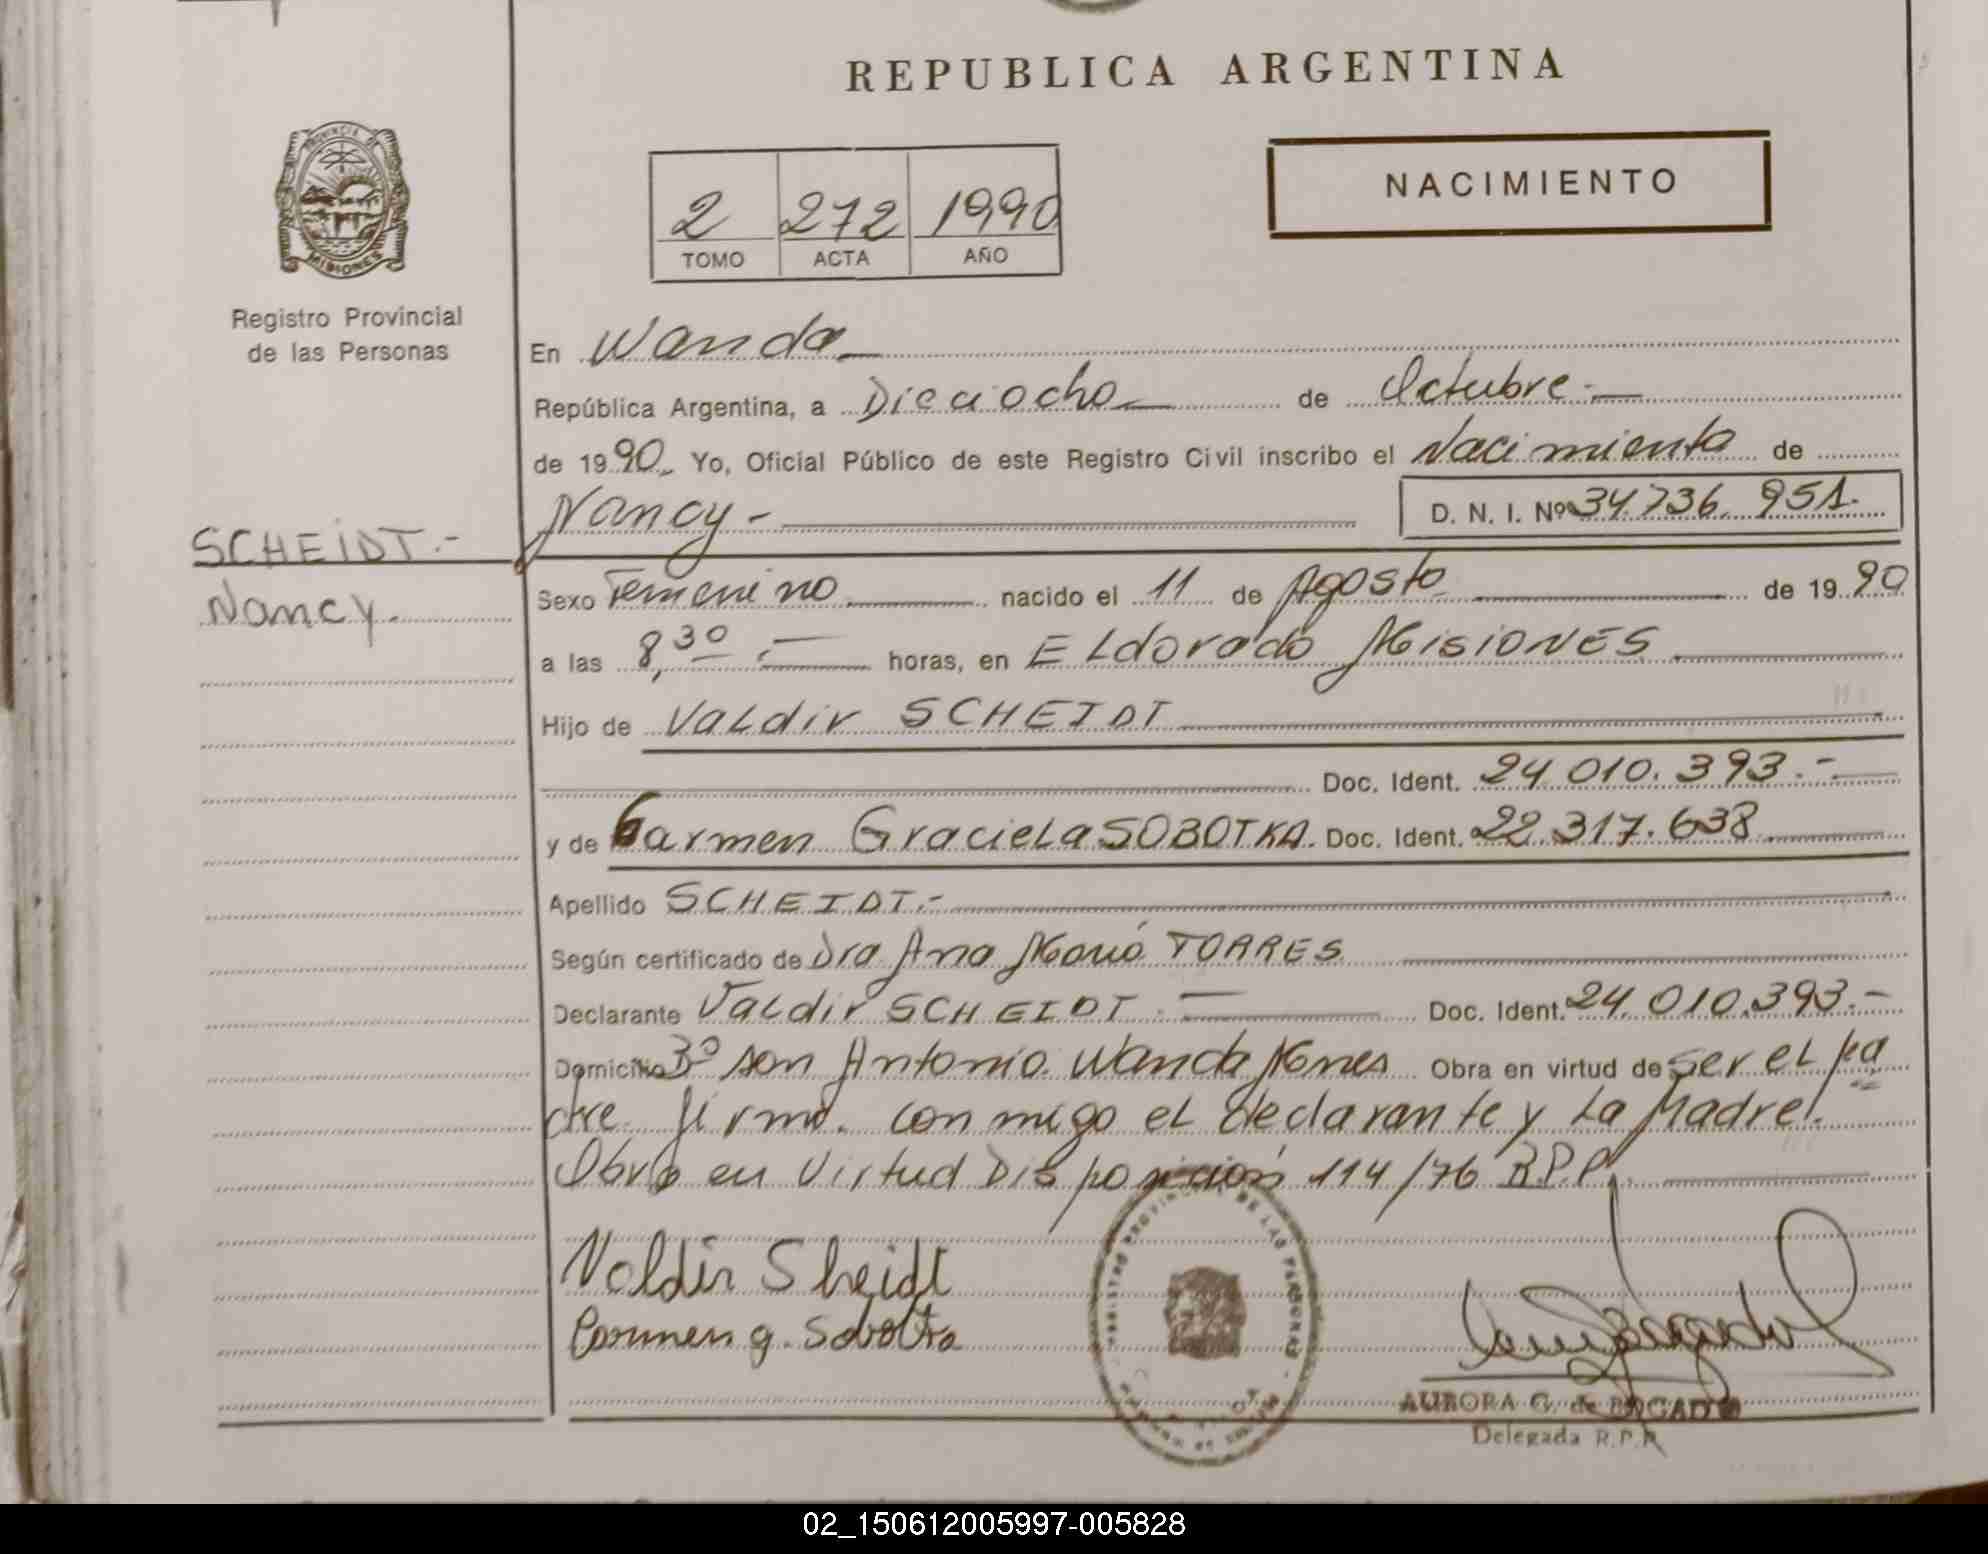 REPUBLICA ARGENTINA
PROVINCIA DE
MISIONES
Registro Provincial
de las Personas
2 272 1990
TOMO ACTA AÑO
NACIMIENTO
En Wanda
República Argentina, a Dieciocho de Octubre.-
de 1990 Yo, Oficial Público de este Registro Civil inscribo el Nacimiento de
Nancy - D. N. I. Nº 34.736.951.-
SCHEIDT.-
Nancy.
Sexo Femenino nacido el 11 de Agosto de 1990
a las 8,30 .- horas, en ELdorado MISIONES
Hijo de VaLdir SCHEIDT
Doc. Ident. 24.010.393.-
y de Carmen GracieLa SOBOTKA. Doc. Ident. 22.317.638
Apellido SCHEIDT.-
Según certificado de Dra Ana María TORRES
Declarante VaLdir SCHEIDT.- Doc. Ident. 24.010.393.-
Domicilio 3º San Antonio. Wanda Mnes Obra en virtud de ser eL pa
dre. firma. conmigo eL declarante y La Madre!.
Obra en Virtud Disposición 114/76 R.P.P.
Valdir Sheidt
Carmen g. Sobotka
REGISTRO PROVINCIAL DE LAS PERSONAS
AURORA G. de BOGADO
Delegada R.P.P.
02_150612005997-005828